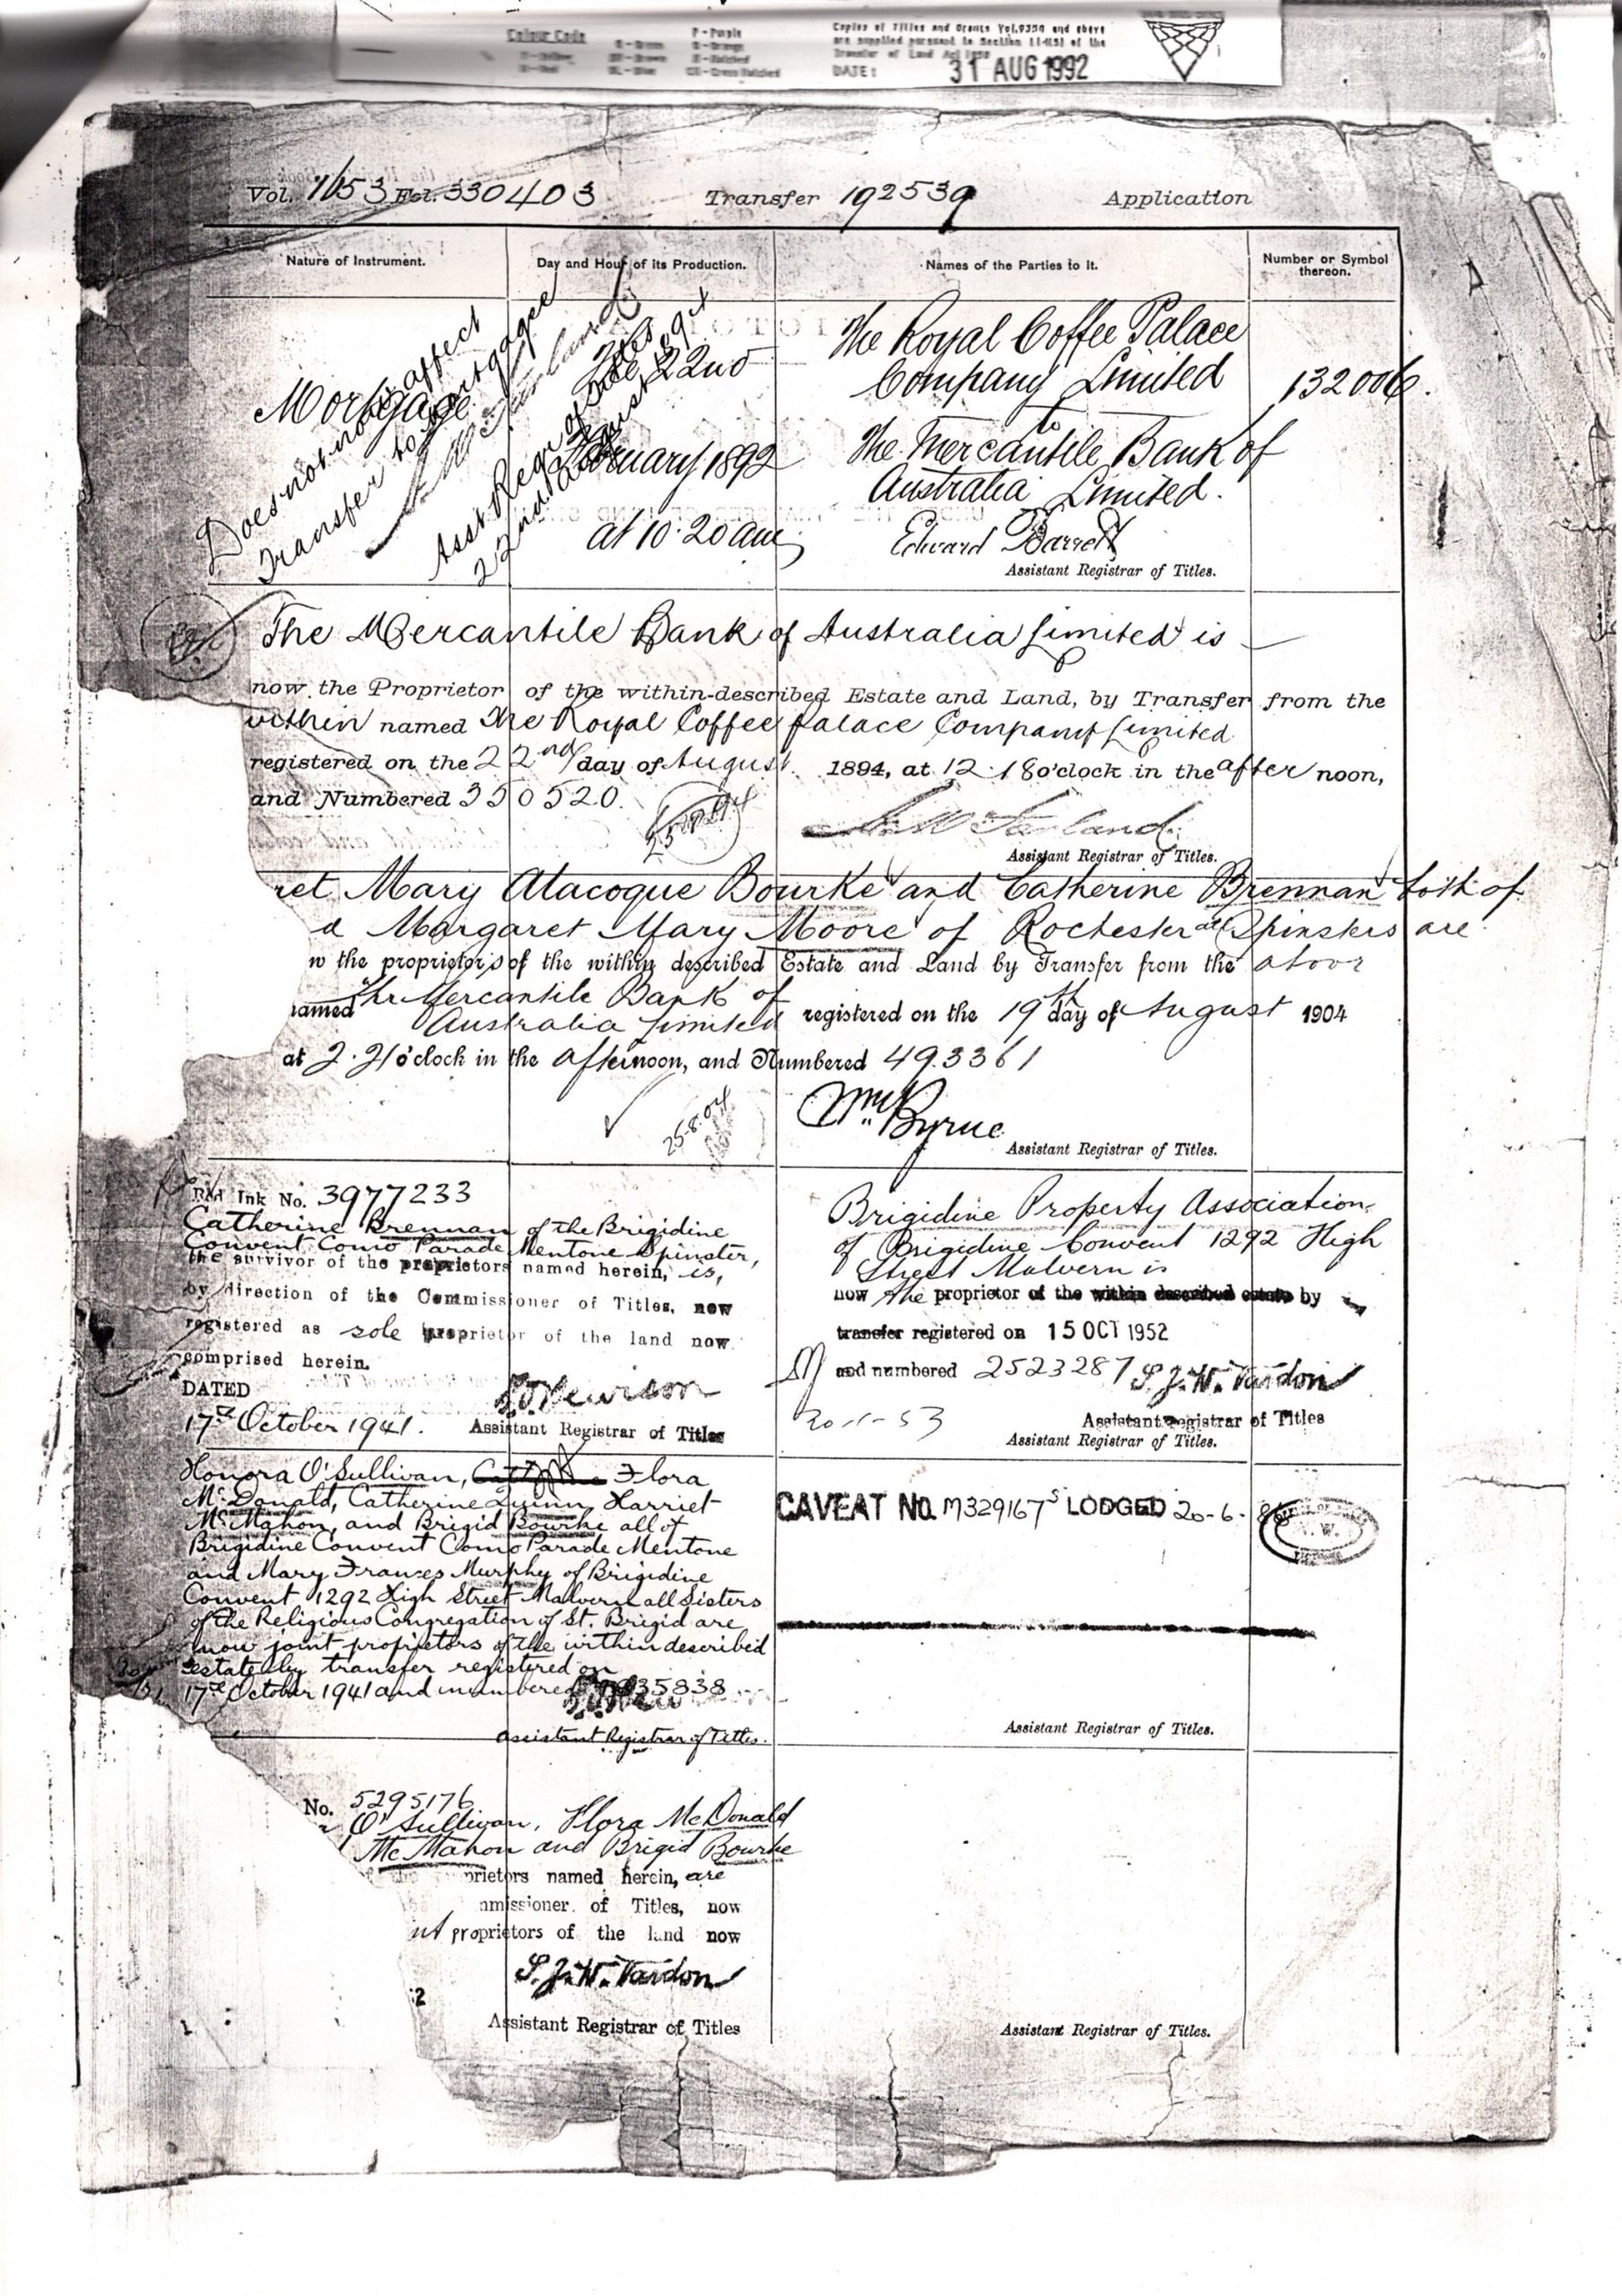 Colour Code
P - Purple
Copies of Titles and Grants Vol.9350 and above
are supplied pursuant to Section 114(5) of the
Transfer of Land Act 1958
DATE: 31 AUG 1992
Vol. 1653 Fol. 330403 Transfer 192539 Application
Nature of Instrument.
Day and Hour of its Production.
Names of the Parties to it.
Number or Symbol thereon.
Mortgage
22nd
February 1892
at 10.20 am
The Royal Coffee Palace
Company Limited
to
The Mercantile Bank of
Australia Limited.
Edward Barrett
Assistant Registrar of Titles.
132006.
Does not now affect
Transfer to Mortgagee
Asst Regr of Titles
22nd August 1894
The Mercantile Bank of Australia Limited is
now the Proprietor of the within-described Estate and Land, by Transfer from the
within named The Royal Coffee Palace Company Limited
registered on the 22nd day of August 1894, at 12.18 o'clock in the after noon,
and Numbered 350520.
Assistant Registrar of Titles.
ret Mary Alacoque Bourke and Catherine Brennan both of
d Margaret Mary Moore of Rochester all Spinsters are
w the proprietors of the within described Estate and Land by Transfer from the above
named The Mercantile Bank of
Australia Limited registered on the 19th day of August 1904
at 2.21 o'clock in the afternoon, and Numbered 493361
25.8.04
Wm Byrne
Assistant Registrar of Titles.
Red Ink No. 3977233
Catherine Brennan of the Brigidine
Convent Como Parade Mentone Spinster,
the survivor of the proprietors named herein, is,
by direction of the Commissioner of Titles, now
registered as sole proprietor of the land now
comprised herein.
DATED
17th October 1941.
Assistant Registrar of Titles
Brigidine Property Association
of Brigidine Convent 1292 High
Street Malvern is
now the proprietor of the within described estate by
transfer registered on 15 OCT 1952
and numbered 2523287
S. J. W. Vardon
20-1-53
Assistant Registrar of Titles
Assistant Registrar of Titles.
Honora O'Sullivan, Flora
McDonald, Catherine Quinn, Harriet
McMahon, and Brigid Bourke all of
Brigidine Convent Como Parade Mentone
and Mary Frances Murphy of Brigidine
Convent 1292 High Street Malvern all Sisters
of the Religious Congregation of St. Brigid are
now joint proprietors of the within described
estate by transfer registered on
17th October 1941 and numbered
Assistant Registrar of Titles.
CAVEAT NO. M329167S LODGED 20-6-86
Assistant Registrar of Titles.
No. 5295176
O'Sullivan, Flora McDonald
McMahon and Brigid Bourke
prietors named herein, are
mmissioner of Titles, now
nt proprietors of the land now
S. J. W. Vardon
2
Assistant Registrar of Titles
Assistant Registrar of Titles.